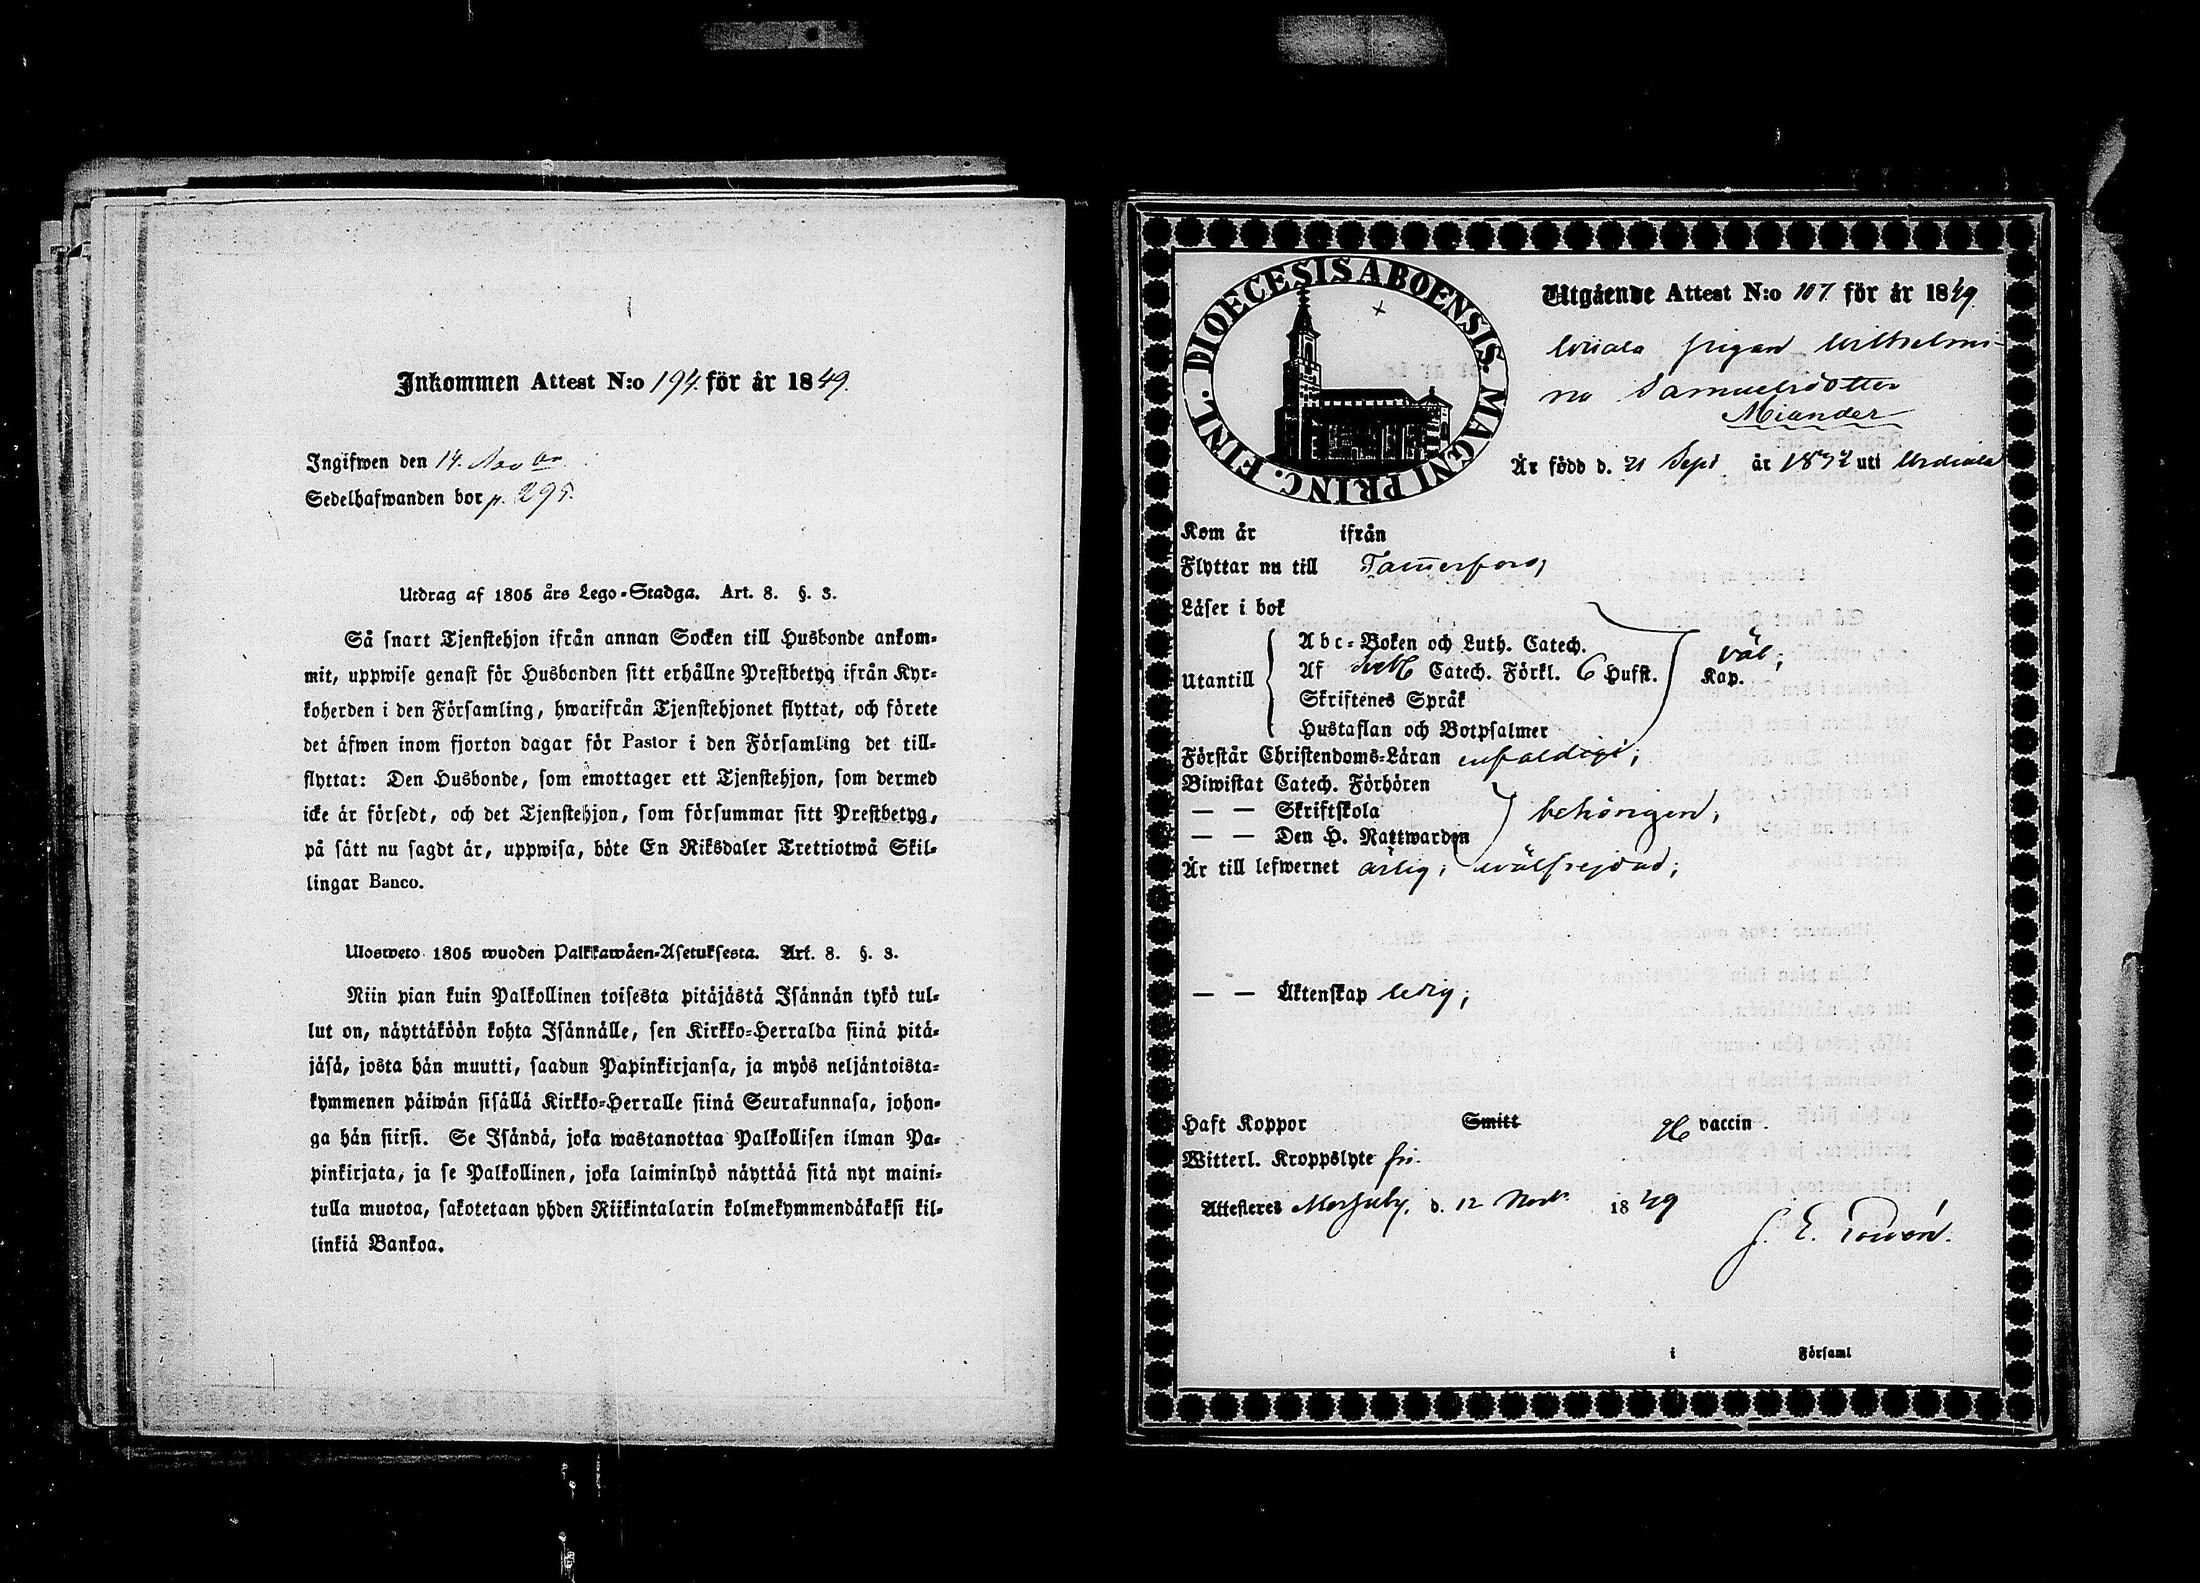 Inkommen Attest N:o 194. för år 1849.
Ingifwen den 14. Novbr
Sedelhafwanden bor p. 295.
Utdrag af 1805 års Lego-Stadga. Art. 8. §. 3.
Så snart Tjenstehjon ifrån annan Socken till Husbonde ankom-
mit, uppwise genast för Husbonden sitt erhållne Prestbetyg ifrån Kyr-
koherden i den Församling, hwarifrån Tjenstehjonet flyttat, och förete
det äfwen inom fjorton dagar för Pastor i den Församling det till-
flyttat: Den Husbonde, som emottager ett Tjenstehjon, som dermed
icke är försedt, och det Tjenstehjon, som försummar sitt Prestbetyg,
på sätt nu sagdt är, uppwisa, böte En Riksdaler Trettiotwå Skil-
lingar Banco.
Ulosweto 1805 wuoden Palkkawäen-Asetuksesta. Art. 8. §. 3.
Niin pian kuin Palkollinen toisesta pitäjästä Isännän tykö tul-
lut on, näyttäköön kohta Isännälle, sen Kirkko-Herralda siinä pitä-
jäsä, josta hän muutti, saadun Papinkirjansa, ja myös neljäntoista-
kymmenen päiwän sisällä Kirkko-Herralle siinä Seurakunnasa, johon-
ga hän siirsi. Se Isändä, joka wastanottaa Palkollisen ilman Pa-
pinkirjata, ja se Palkollinen, joka laiminlyö näyttää sitä nyt maini-
tulla muotoa, sakotetaan yhden Riikintalarin kolmekymmendäkaksi kil-
linkiä Bankoa.
DIOECESIS ABOENSIS. MAGNI PRINC. FINL.
Utgående Attest N:o 107. för år 1849.
pigan Wilhelmi-
na Samuelsdotter
Miander
Är född d. 21 Sept år 1832 uti Urdiala
Kom år ifrån
Flyttar nu till Tammerfors,
Läser i bok
Utantill
Abc-Boken och Luth. Catech.
Af Catech. Förkl. 6 Hufst. Kap.
väl;
Skriftenes Språk
Hustaflan och Botpsalmer
Förstår Christendoms-Läran enfaldigt;
Biwistat Catech. Förhören
— — Skriftskola
behörigen,
— — Den H. Nattwarden
Är till lefwernet ärlig, wälfrejdad;
— — Äktenskap ledig;
Haft Koppor Smitt vaccin.
Witterl. Kroppslyte fri.
Attesteres d. 12 Novbr 1849
i Församl